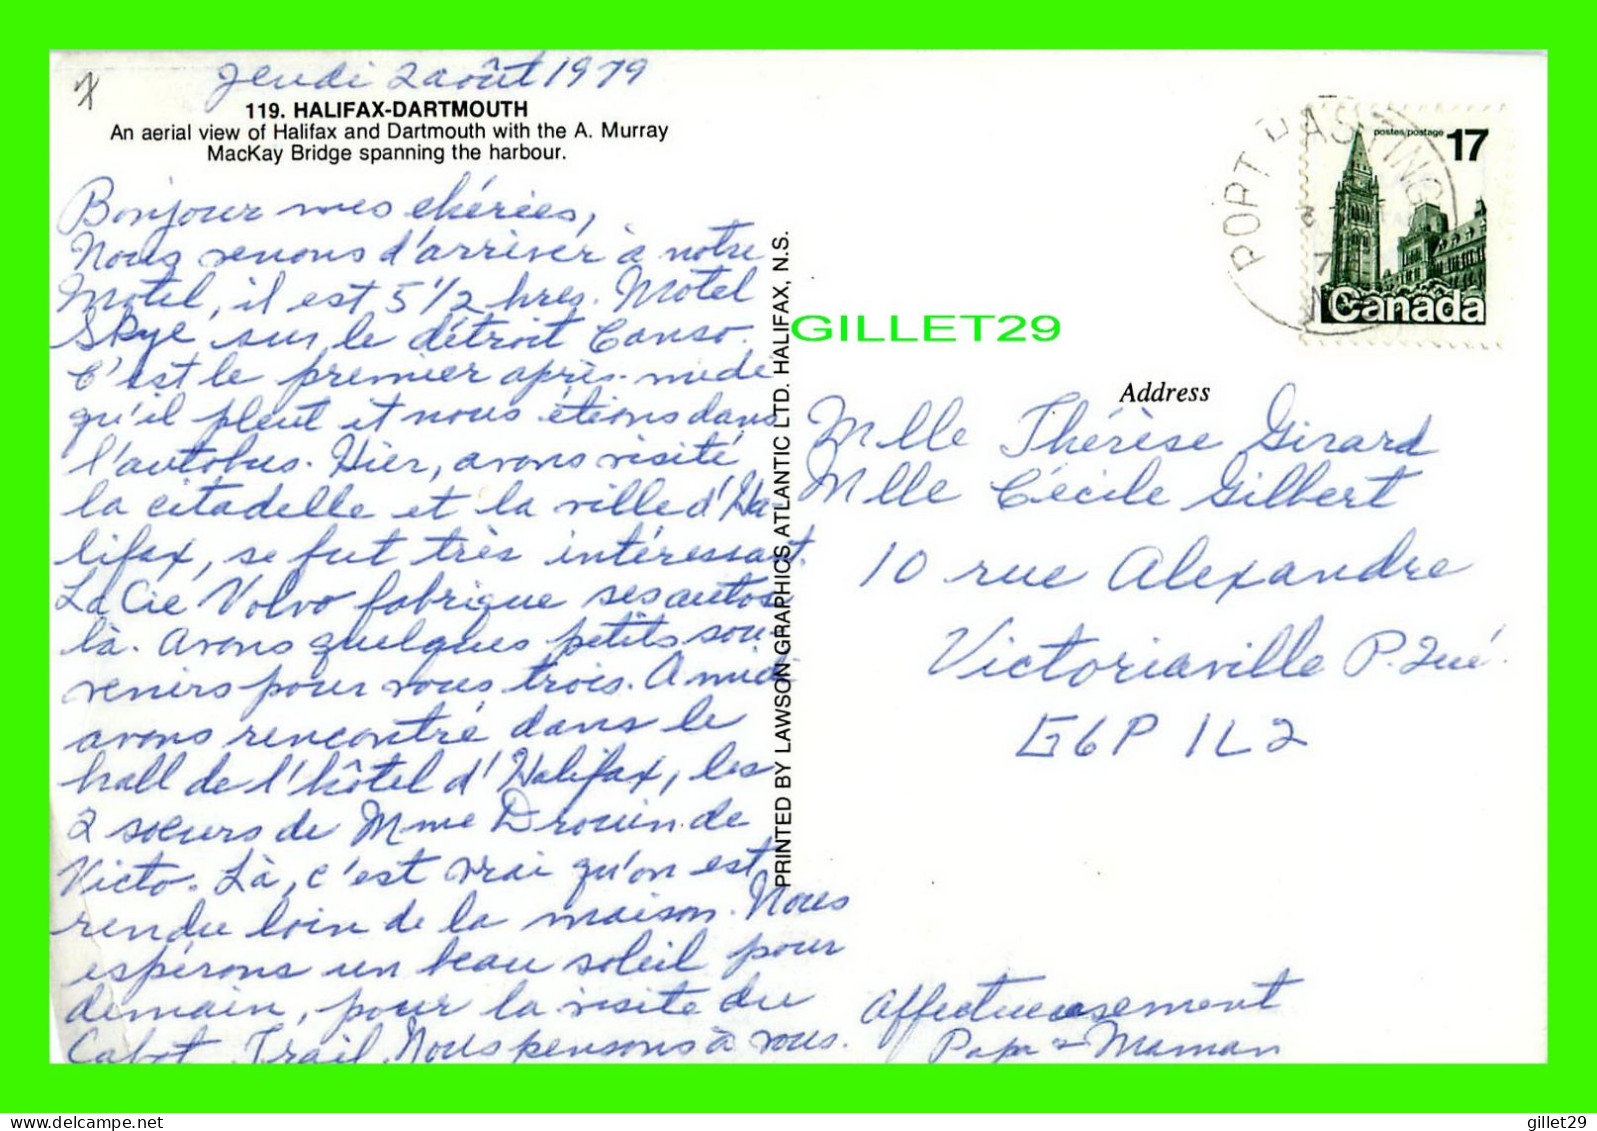 Jeudi 2 août 1979
119. HALIFAX-DARTMOUTH
An aerial view of Halifax and Dartmouth with the A. Murray
MacKay Bridge spanning the harbour.
Bonjour mes chéries,
Nous venons d'arriver à notre
Motel, il est 5 1/2 hres. Motel
Skye sur le détroit Canso.
C'est le premier après-mide
qu'il pleut et nous étions dans
l'autobus. Hier, avons visité
la citadelle et la ville d'Ha
lifax, se fut très intéressant.
La Cie Volvo fabrique ses autos
là. Avons quelques petits sou-
venirs pour vous trois. A midi
avons rencontré dans le
hall de l'hôtel d'Halifax, les
2 soeurs de Mme Drouin de
Victo. Là, c'est vrai qu'on est
rendu loin de la maison. Nous
espérons un beau soleil pour
demain, pour la visite du
Cabot Trail. Nous pensons à vous.
PRINTED BY LAWSON GRAPHICS ATLANTIC LTD. HALIFAX, N.S.
GILLET29
PORT HASTINGS
postes/postage 17
Canada
Address
Mlle Thérèse Girard
Mlle Cécile Gilbert
10 rue Alexandre
Victoriaville P. Qué.
G6P 1L2
Affectueusement
Papa & Maman
delcampe.net
gillet29